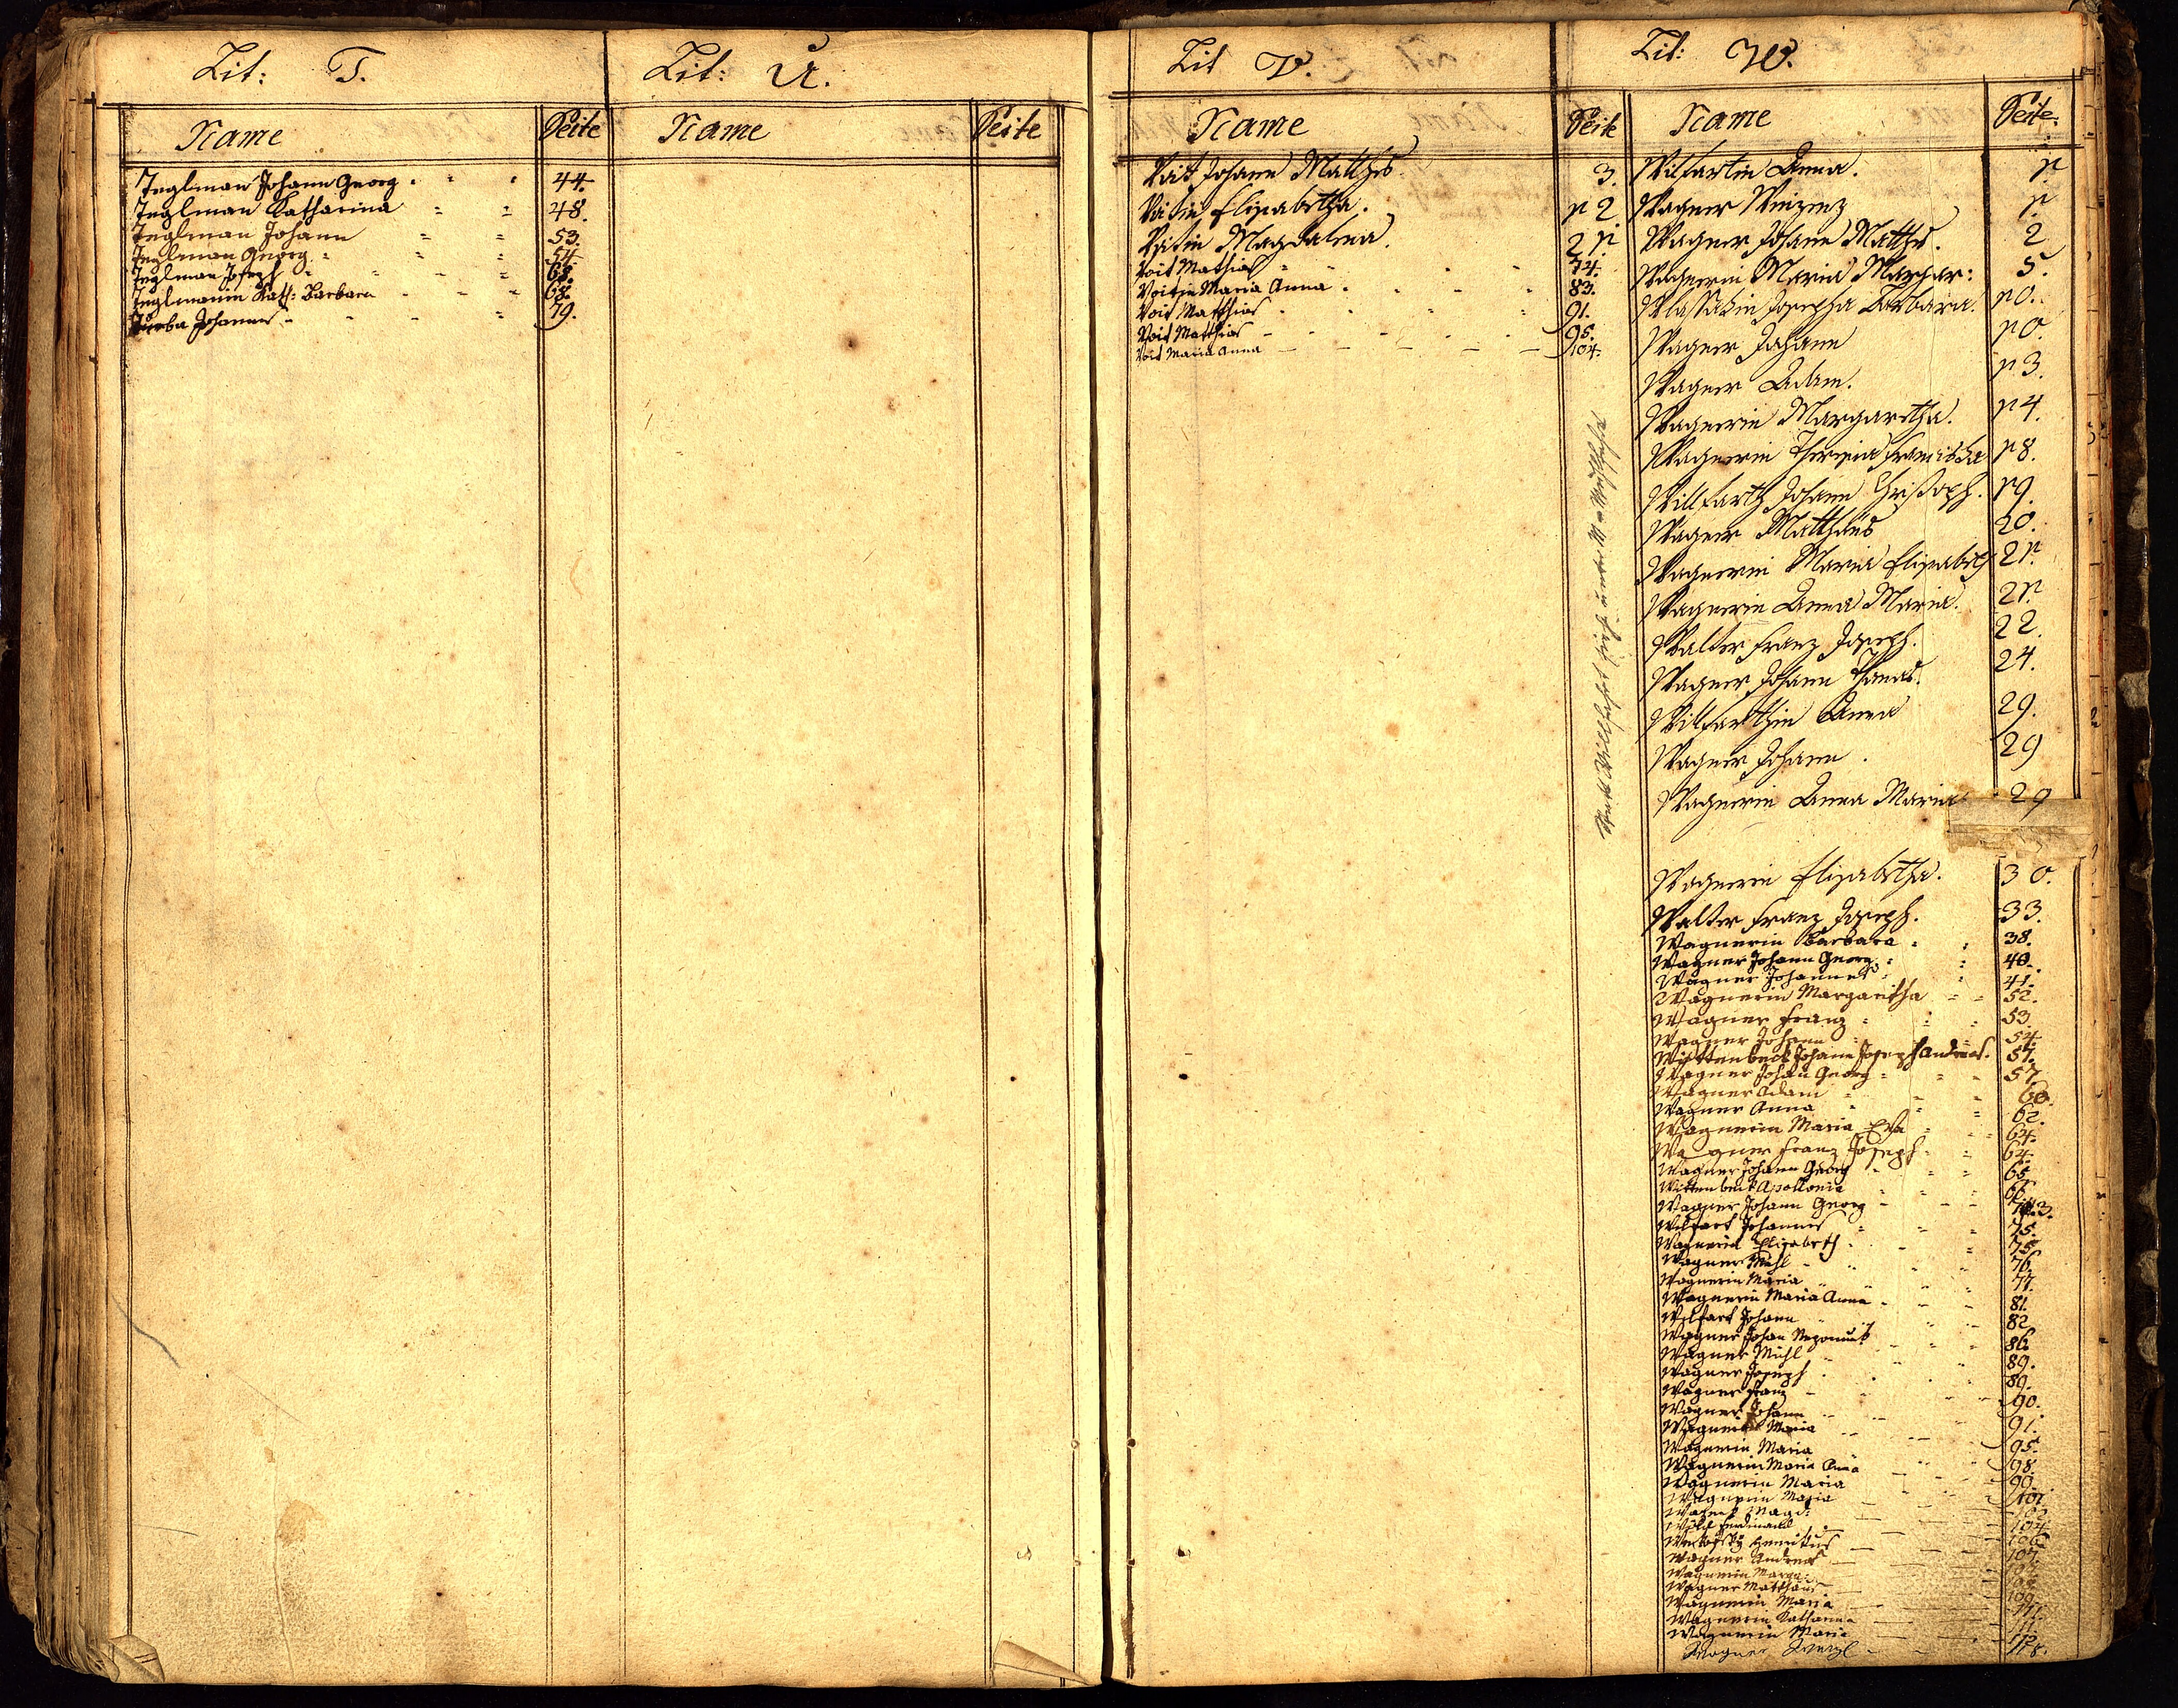 Lit: T.
Name Seite
Teglman Johann Georg 44.
Teglman Katharina 48.
Teglman Johann 53.
Teglman Georg 54.
Teglman Joseph 68.
Teglmanin Kath: Barbara 68.
Johannes 79.
Lit: U.
Name Seite
Lit V.
Name Seite
Voit Johann Matthes 3.
Voitin Elisabetha. 12
Voitin Magdalena. 21.
Voit Mathias 74.
Voitin Maria Anna 83.
Voit Matthias 91.
Voit Matthias 95.
Voit Maria Anna 104.
Lit: W.
Name Seite
Wilfartin Anna. 1
Wagner Vinzenz 1.
Wagner Johann Matthes. 2
Wagnerin Maria Margar: 5.
Josepha Barbara. 10.
Wagner Johann 10.
Wagner Adam. 13.
Wagnerin Margaretha. 14.
Wagnerin Theresia Francisca 18.
Willfarth Johann Christoph. 19.
Wagner Matthäus 20.
Wagnerin Maria Elisabeth 21.
Wagnerin Anna Maria. 21.
Walter Franz Joseph. 22.
Wagner Johann Thomas. 24.
Wilfarthin Anna 29.
Wagner Johann. 29
Wagnerin Anna Maria 29
Wagnerin Elisabetha. 30.
Walter Franz Joseph. 33.
Wagnerin Barbara 38.
Wagner Johann Georg 40.
Wagner Johannes 41.
Wagnerin Margaretha 52.
Wagner Franz 53.
Wagner Johann 54.
Wittenbeck Johann Joseph Andreas. 57.
Wagner Johann Georg 57
Wagner Adam 60.
Wagner Anna 62.
Wagnerin Maria Eva 64.
Wagner Franz Joseph 64.
Wagner Johann Georg 65.
Wittenbeck Apollonia
Wagner Johann Georg
Wilfart Johannes 75.
Wagnerin Elisabeth 75.
Wagner Michl 76.
Wagnerin Maria 77.
Wagnerin Maria Anna 81.
Wilfart Johann 82
Wagner Johan Nepomuck 86
Wagner Michl 89.
Wagner Joseph 89.
Wagner Franz 90.
Wagner Johann 91.
Wagnerin Maria 95.
Wagnerin Maria 98
Wagnerin Maria Anna 99.
Wagnerin Maria 101.
Wagnerin Maria
Wagner Magd:
Ferdinand 104.
Henricus 106
Wagner Andreas 107.
Wagnerin Marga:
Wagner Matthäus
Wagnerin Maria
Wagnerin Katharina
Wagnerin Maria
Wagner 118.